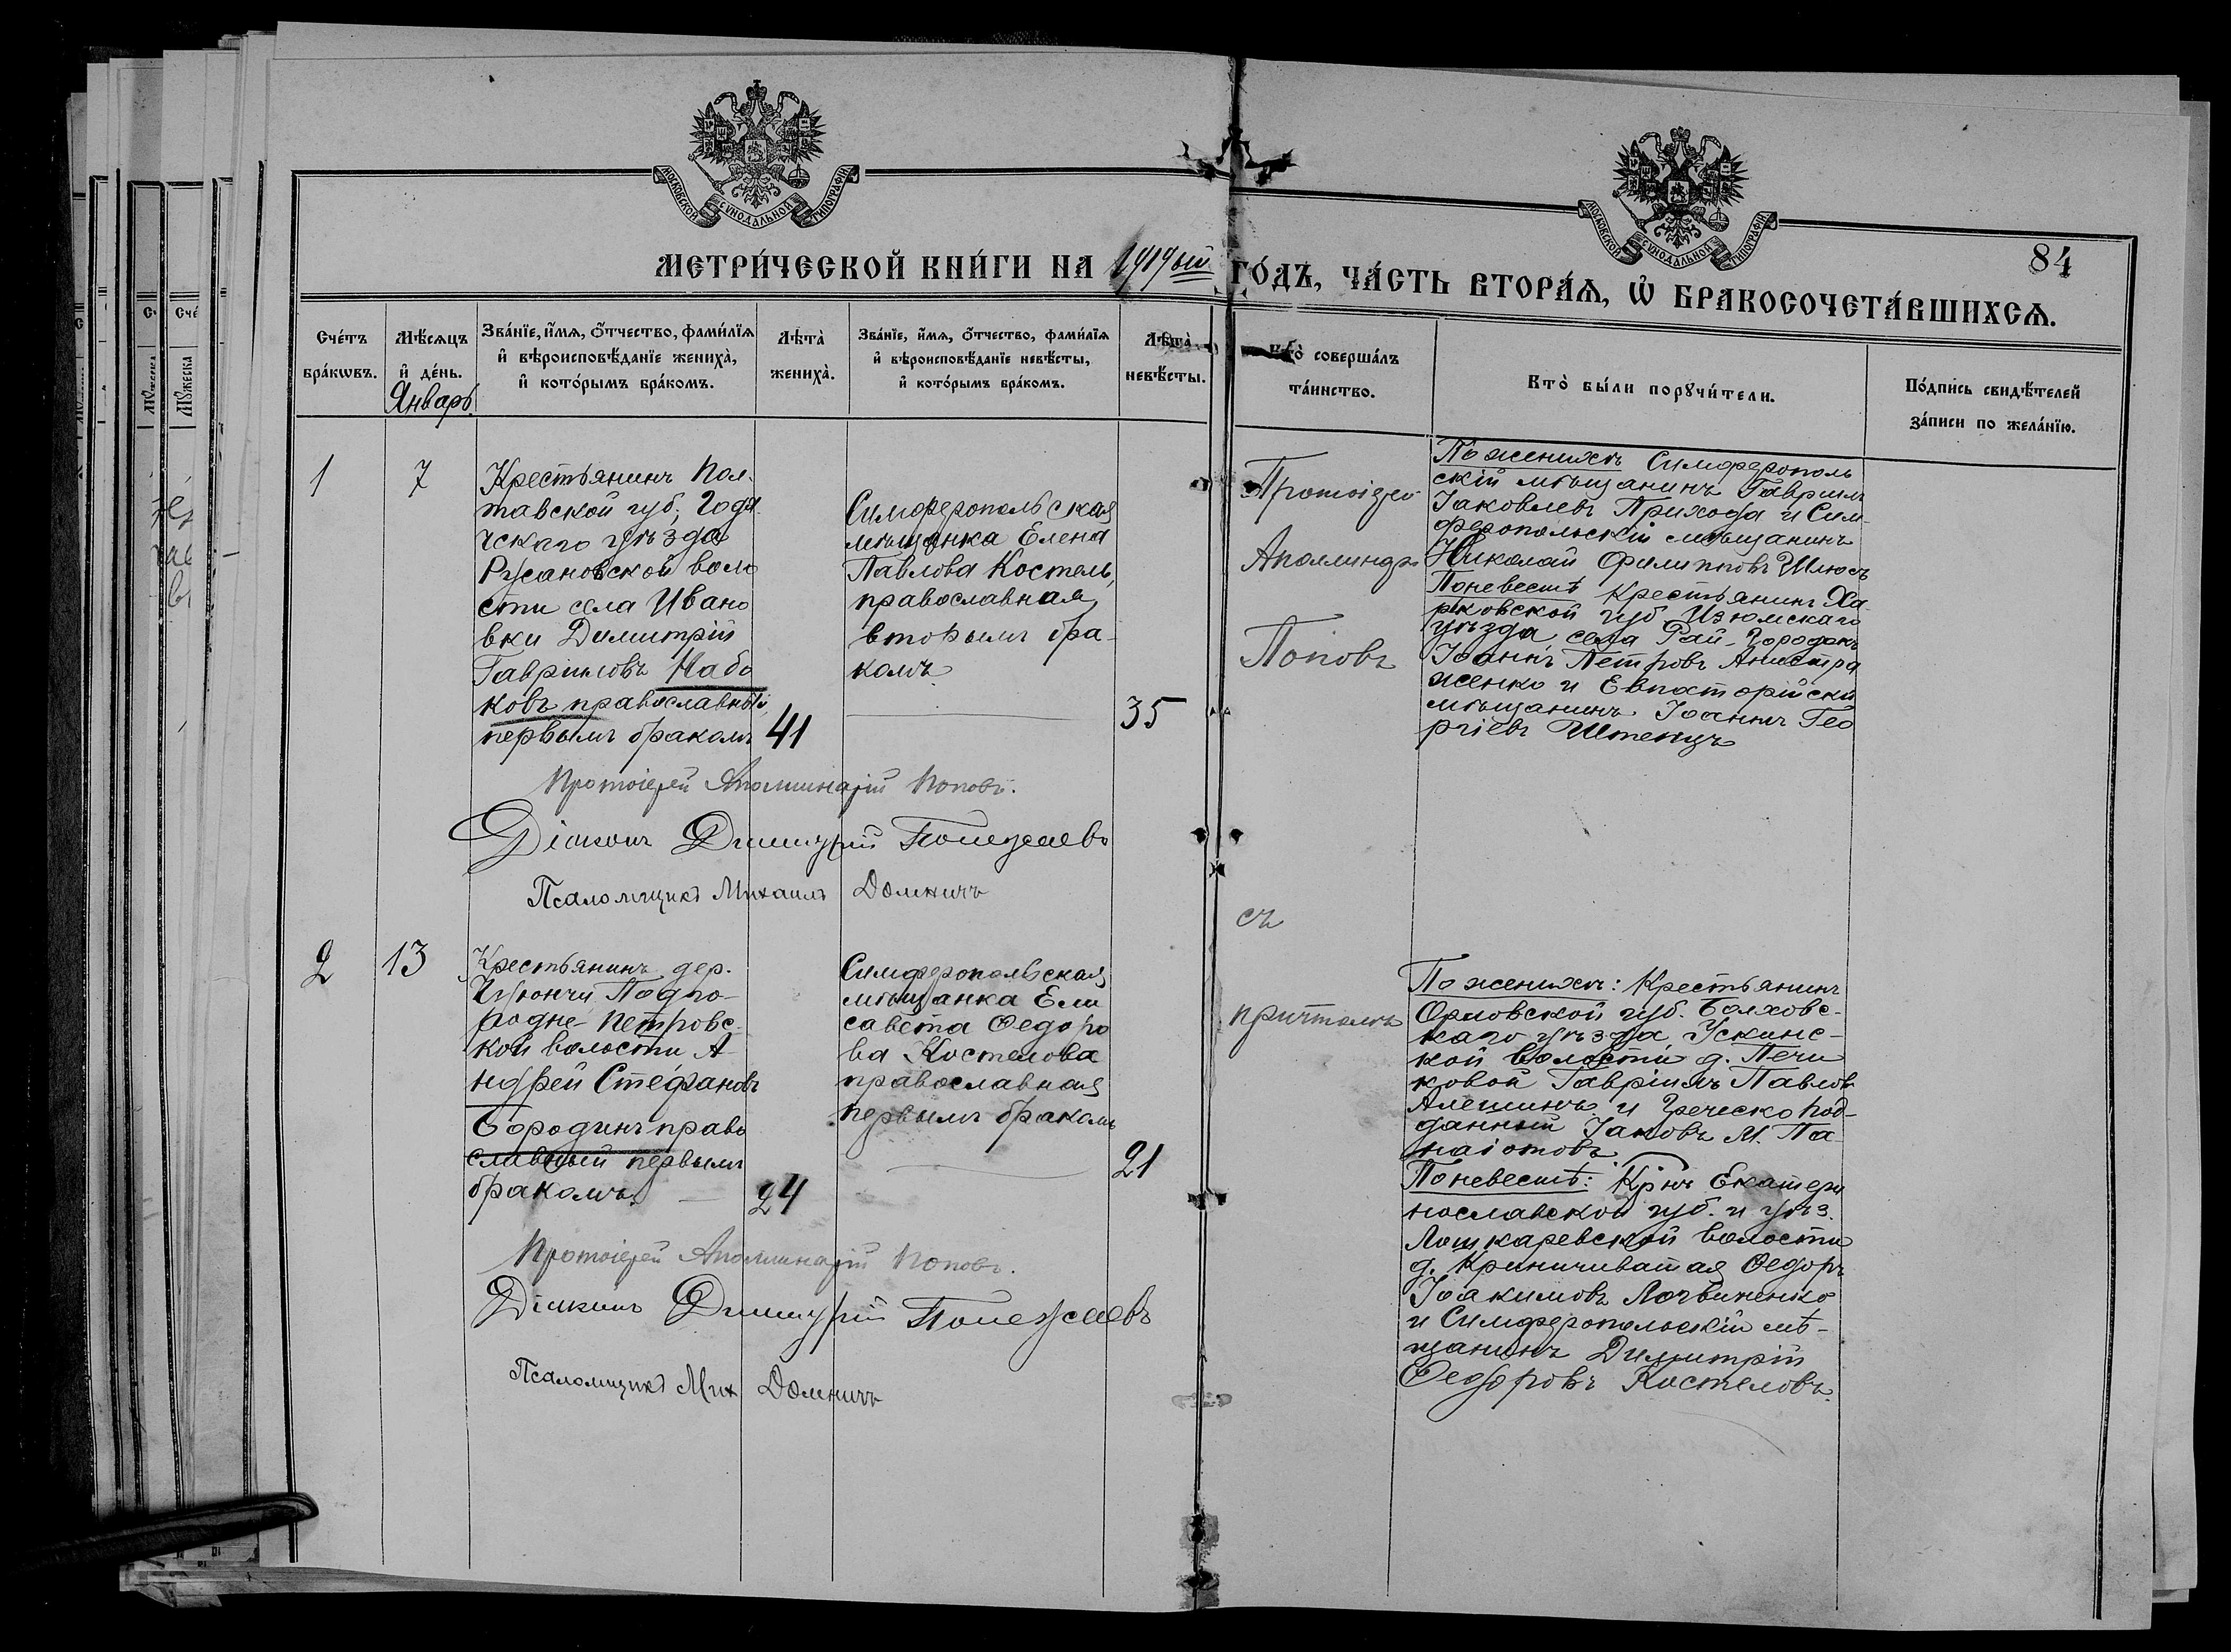 МОСКОВСКОЙ СѴНОДАЛЬНОЙ ТИПОГРАФІИ
МОСКОВСКОЙ СѴНОДАЛЬНОЙ ТИПОГРАФІИ
84
МЕТРИ́ЧЕСКОЙ КНИ́ГИ НА 1919ый ГО́ДЪ, ЧА́СТЬ ВТОРА́Ѧ, Ѡ҆ БРАКОСОЧЕТА́ВШИХСѦ.
Сче́тъ бра́кѡвъ.
Мѣ́сѧцъ и҆ де́нь.
Январь
Зва́нїе, и҆́мѧ, ѻ҆́тчество, фами́лїѧ
и҆ вѣроисповѣ́данїе жениха̀,
и҆ кото́рымъ бра́комъ.
Лѣта̀ жениха̀.
Зва́нїе, и҆́мѧ, ѻ҆́тчество, фами́лїѧ
и҆ вѣроисповѣ́данїе невѣ́сты,
и҆ кото́рымъ бра́комъ.
Лѣта̀ невѣ́сты.
Кто̀ соверша́лъ
та́инство.
Кто̀ бы́ли порꙋчи́тели.
По́дпись свидѣ́телей
за́писи по жела́нїю.
1
7
Крестьянинъ Пол-
тавской губ., Годя-
чскаго уѣзда
Русановской воло
сти села Ивано
вки Димитрій
Гавріиловъ Набо
ковъ православный,
первымъ бракомъ
41
Симферопольская
мѣщанка Елена
Павлова Костель,
православная,
вторымъ бра-
комъ
35
Протоіерей
Аполлинарій
Поповъ
По женихѣ Симферополь
скій мѣщанинъ Гавріилъ
Іаковлевъ Прихода и Сим-
феропольскій мѣщанинъ
Николай Филипповъ Шлюсъ
По невестѣ Крестьянинъ Ха-
рьковской губ Изюмскаго
уѣзда, села Рай-Городокъ
Іоаннъ Петровъ Анистра
женко и Евпаторійскій
мѣщанинъ Іоаннъ Гео
ргіевъ Штенцъ
Протоіерей Аполлинарій Поповъ.
Діаконъ Димитрій Полежаевъ
Псаломщикъ Михаилъ Домничъ
2
13
Крестьянинъ дер.
Подго-
родне-Петровс-
кой волости А-
ндрей Стефановъ
Бородинъ право
славный первымъ
бракомъ.
24
Симферопольская
мѣщанка Ели
савета Ѳедоро
ва Костелова
православная
первымъ бракомъ
21
съ
причтомъ
По женихѣ: Крестьянинъ
Орловской губ. Болховс-
каго уѣзда, Ускинс-
кой волости д. Печи
ковой Гавріилъ Павловъ
Алешинъ и Греческо под-
данный Іаковъ М. Па-
наіотовъ.
По невестѣ: Кр-нъ Екатери
нославской губ. и уѣз.
Лошкаревской волости
д. Криничиватая Ѳедоръ
Іоакимовъ Логвиненко
и Симферопольскій мѣ-
щанинъ Димитрій
Ѳеодоровъ Костеловъ.
Протоіерей Аполлинарій Поповъ.
Діаконъ Димитрій Полежаевъ
Псаломщикъ Мих Домничъ